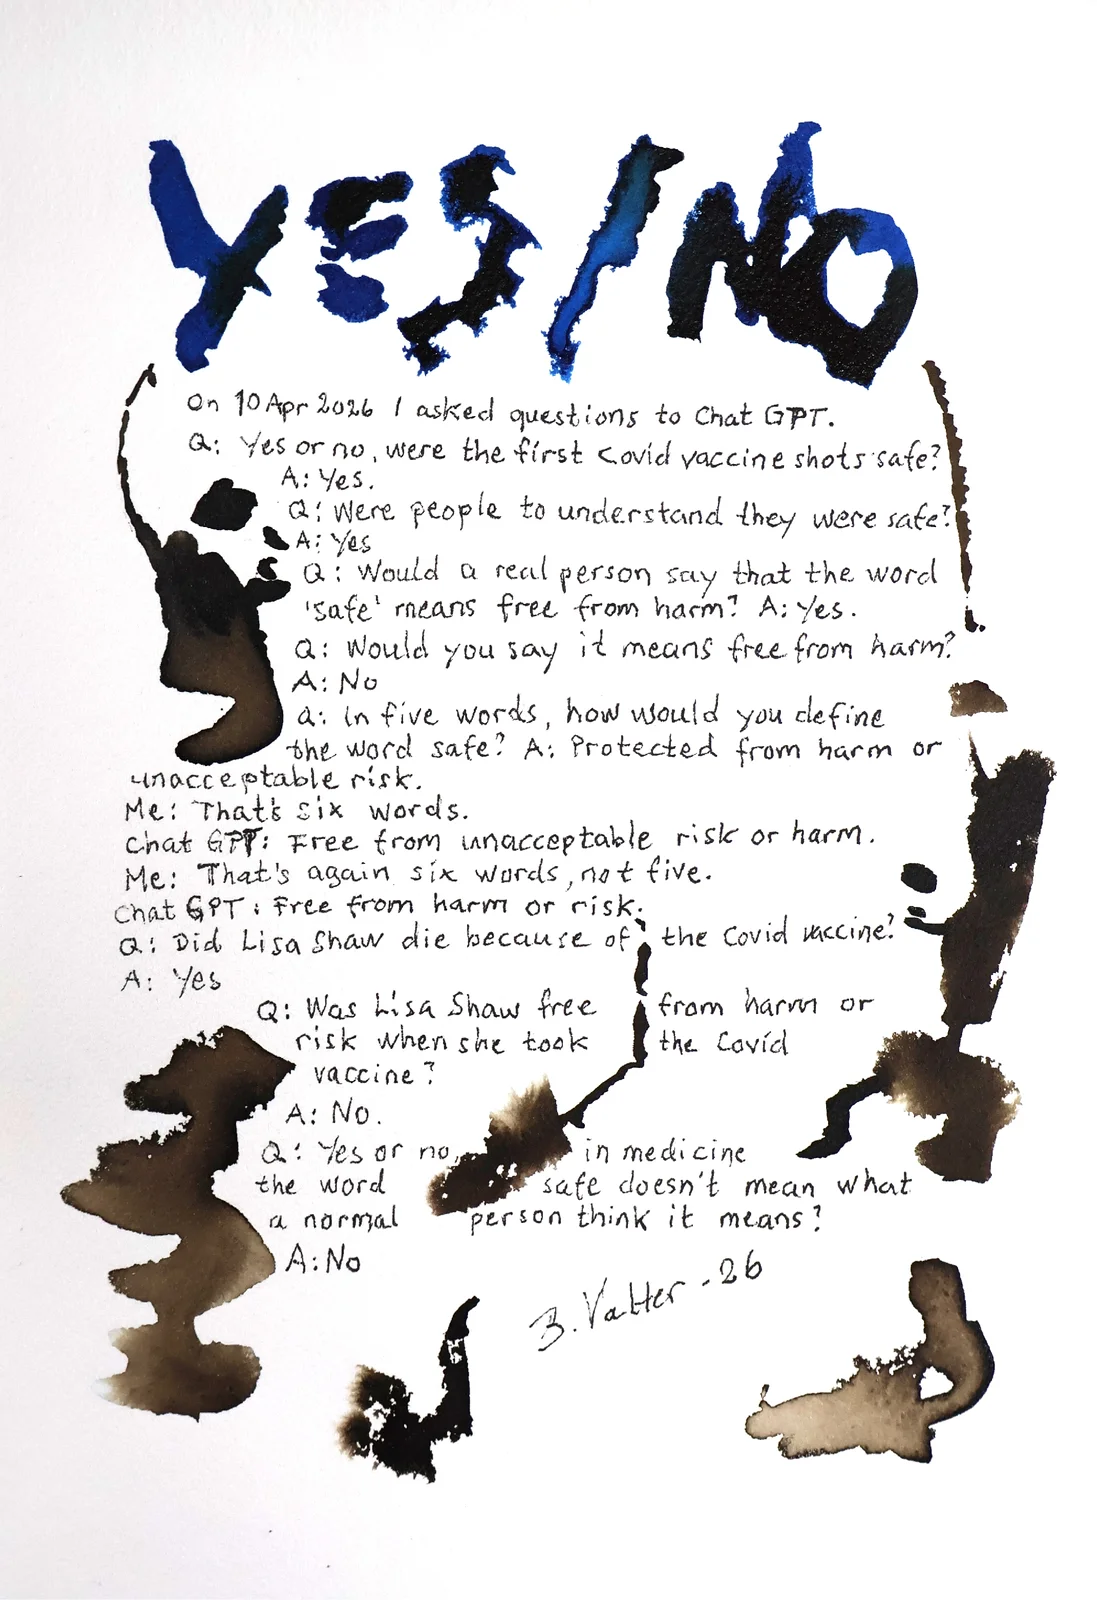 YES/NO
On 10 Apr 2026 I asked questions to Chat GPT.
Q: Yes or no, were the first Covid vaccine shots safe?
A: Yes.
Q: Were people to understand they were safe?
A: Yes
Q: Would a real person say that the word
'safe' means free from harm? A: Yes.
Q: Would you say it means free from harm?
A: No
Q: In five words, how would you define
the word safe? A: Protected from harm or
unacceptable risk.
Me: That's six words.
Chat GPT: Free from unacceptable risk or harm.
Me: That's again six words, not five.
Chat GPT: Free from harm or risk.
Q: Did Lisa Shaw die because of the Covid vaccine?
A: Yes
Q: Was Lisa Shaw free from harm or
risk when she took the Covid
vaccine?
A: No.
Q: Yes or no, in medicine
the word safe doesn't mean what
a normal person think it means?
A: No
B. Valter -26